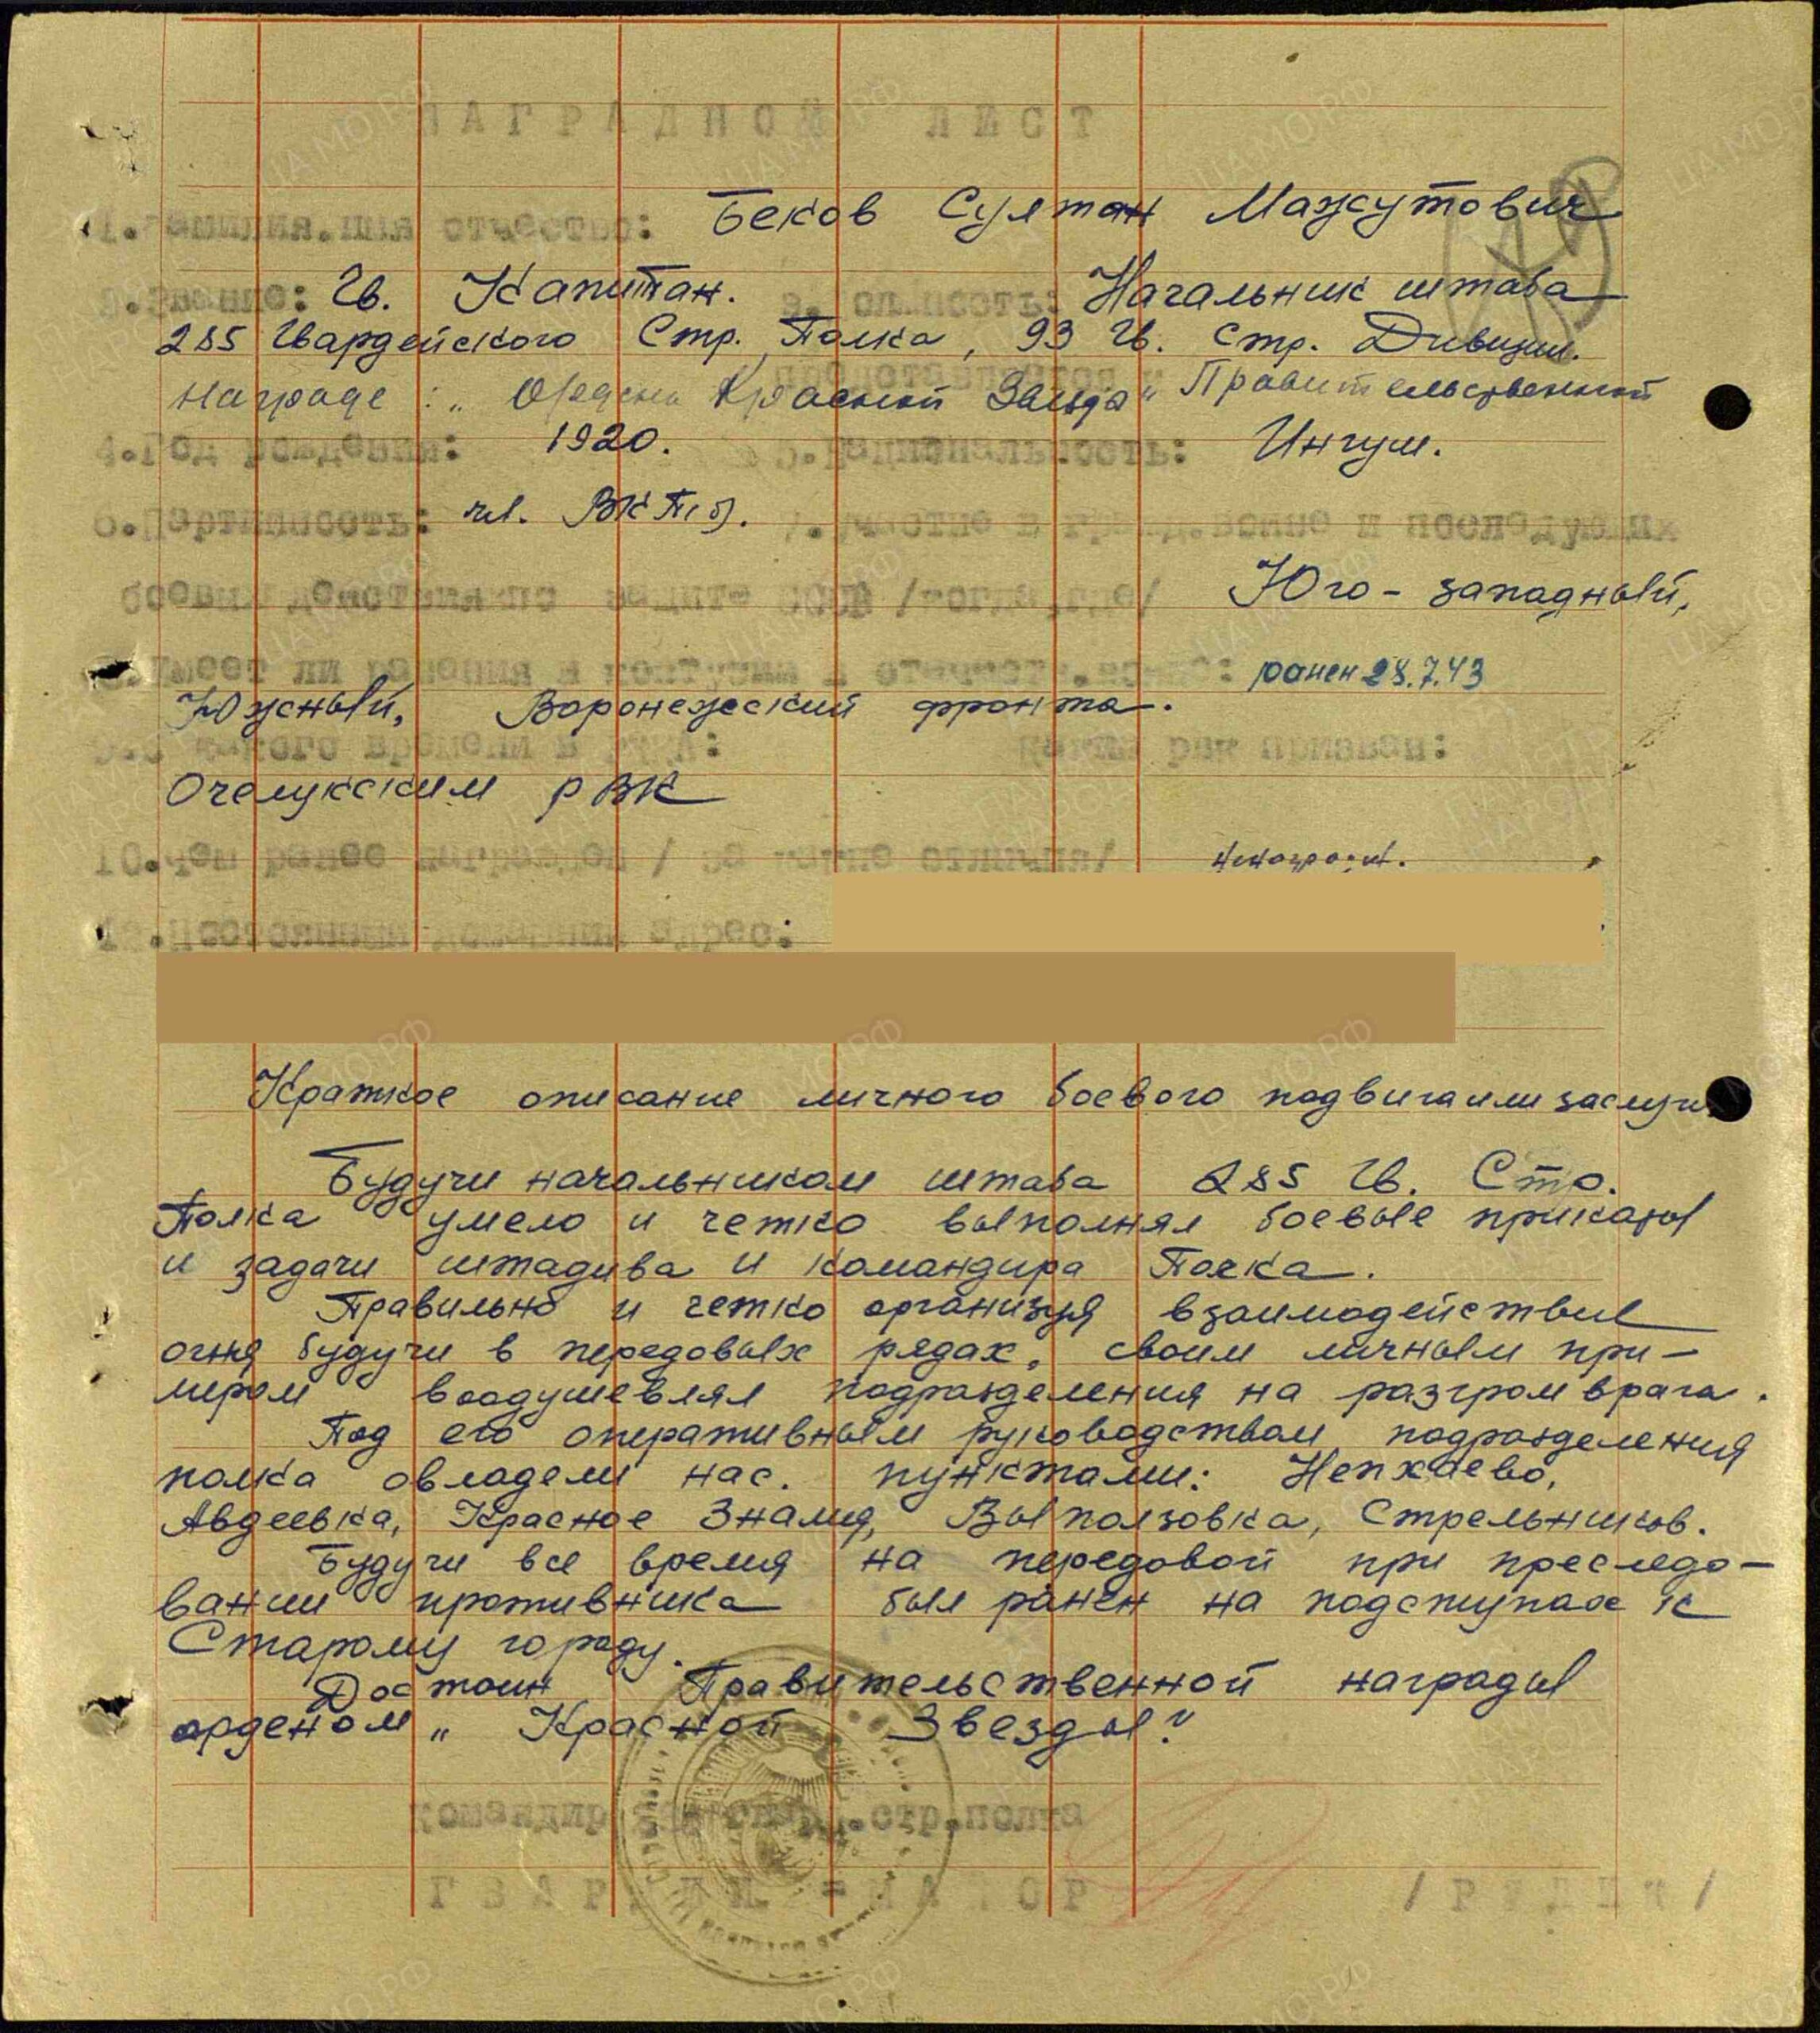 НАГРАДНОЙ ЛИСТ
1.Фамилия, имя отчество: Беков Султан Мажутович
2.Звание: Гв. Капитан. 3.Должность: Начальник штаба
285 Гвардейского Стр. Полка, 93 Гв. Стр. Дивизии.
представляется к
Награде: „Ордена Красной Звезда" Правительственной
4.Год рождения: 1920. 5.Национальность: Ингуш.
6.Партийность: чл. ВКП(б). 7.Участие в гражд.войне и последующих
боевых действиях по защите СССР /когда, где/ Юго-западный,
8.Имеет ли ранения и контузии в отечеств.войне: ранен 28.7.43
Южный, Воронежский фронта.
9.С какого времени в РККА: каким рвк призван:
рвк
10.Чем ранее награжден /за какие отличия/ ненагражд.
Постоянный домашний адрес:
Краткое описание личного боевого подвига или заслуги
Будучи начальником штаба 285 Гв. Стр.
Полка умело и четко выполнял боевые приказы
и задачи штадива и командира Полка.
Правильно и четко организуя взаимодействие
огня будучи в передовых рядах, своим личным при-
мером воодушевлял подразделения на разгром врага.
Под его оперативным руководством подразделения
полка овладели нас. пунктами: Непхаево,
Авдеевка, Красное Знамя, Выползовка, Стрельников.
Будучи все время на передовой при преследо-
вании противника был ранен на подступах к
Старому городу.
Достоин Правительственной награды
орденом „Красной Звезды"
Командир 285 гвард.стр.полка
ГВАРДИИ - МАЙОР